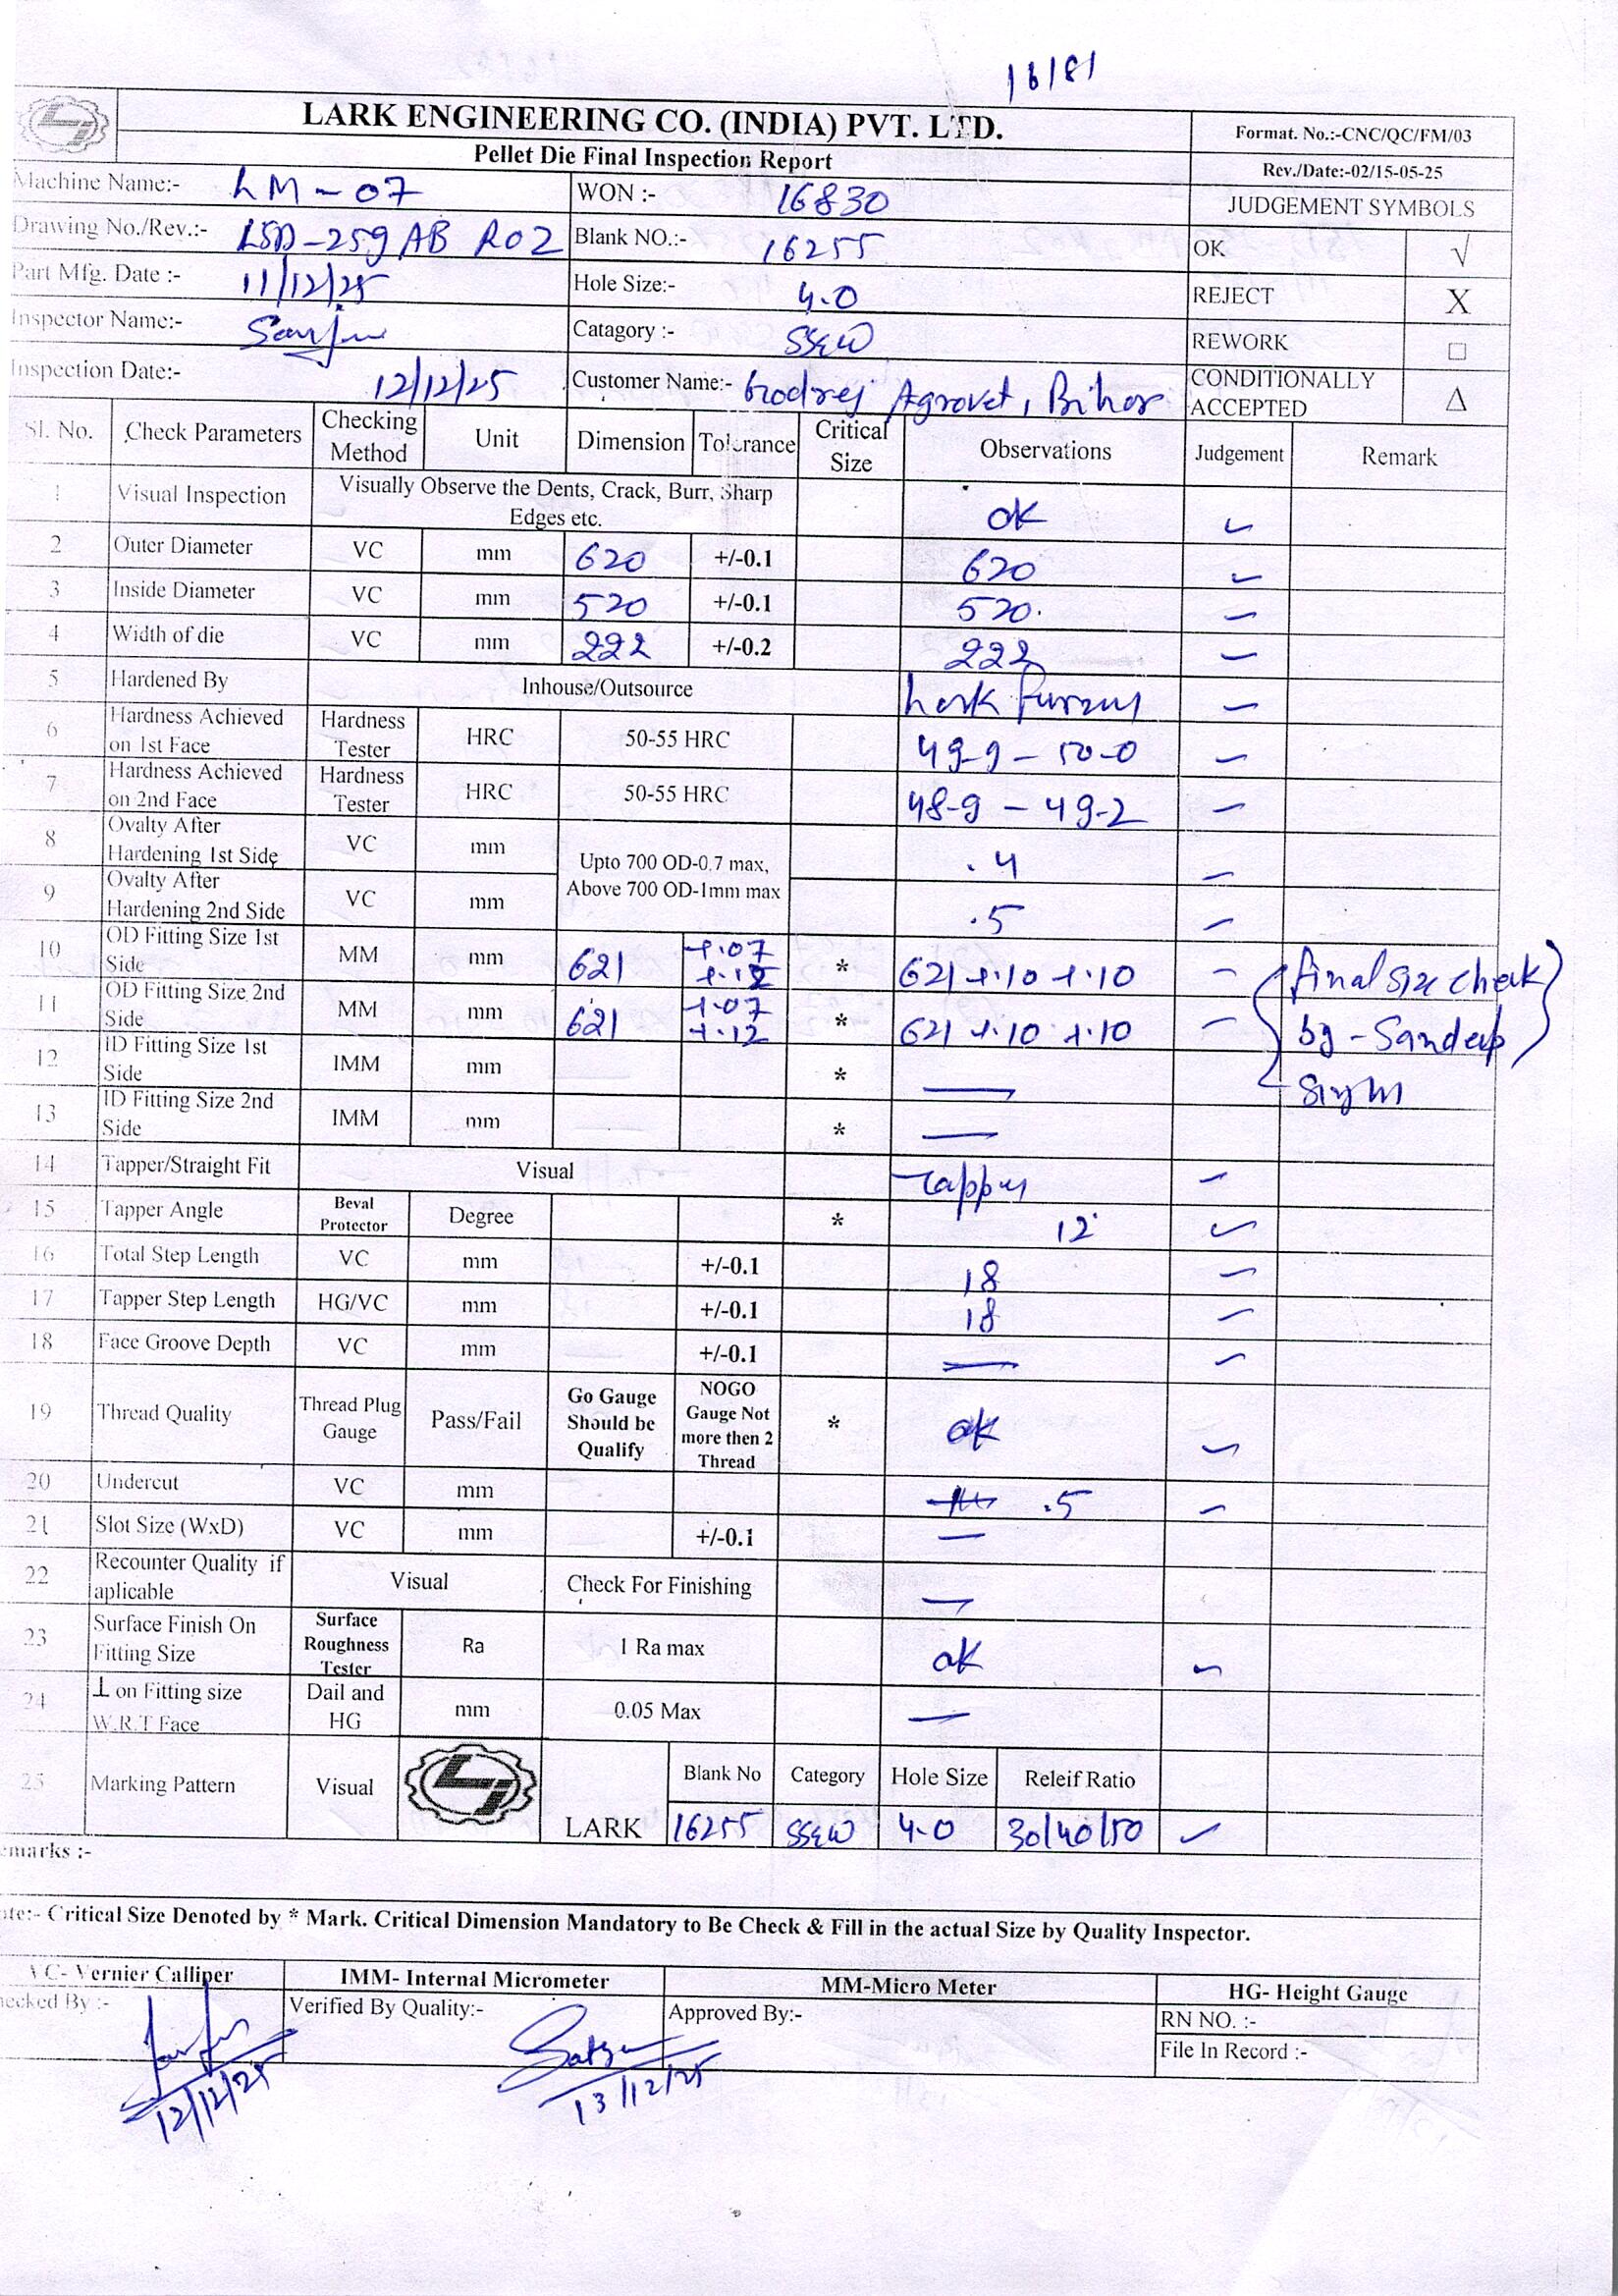 16181
LARK ENGINEERING CO. (INDIA) PVT. LTD.
Pellet Die Final Inspection Report
Format. No.:-CNC/QC/FM/03
Rev./Date:-02/15-05-25
Machine Name:- LM-07 WON :- 16830 JUDGEMENT SYMBOLS
Drawing No./Rev.:- LSD-259 AB R02 Blank NO.:- 16255 OK √
Part Mfg. Date :- 11/12/25 Hole Size:- 4.0 REJECT X
Inspector Name:- Catagory :- SSEW REWORK □
Inspection Date:- 12/12/25 Customer Name:- Godrej Agrovet, Bihar CONDITIONALLY ACCEPTED Δ
Sl. No. Check Parameters Checking Method Unit Dimension Tolerance Critical Size Observations Judgement Remark
1 Visual Inspection Visually Observe the Dents, Crack, Burr, Sharp Edges etc. ok ✓
2 Outer Diameter VC mm 620 +/-0.1 620 ✓
3 Inside Diameter VC mm 520 +/-0.1 520. ✓
4 Width of die VC mm 222 +/-0.2 222 ✓
5 Hardened By Inhouse/Outsource Lark ✓
6 Hardness Achieved on 1st Face Hardness Tester HRC 50-55 HRC 49-9 - 50-0 ✓
7 Hardness Achieved on 2nd Face Hardness Tester HRC 50-55 HRC 48-9 - 49-2 ✓
8 Ovalty After Hardening 1st Side VC mm Upto 700 OD-0.7 max, Above 700 OD-1mm max .4 ✓
9 Ovalty After Hardening 2nd Side VC mm .5 ✓
10 OD Fitting Size 1st Side MM mm 621 +.07 +.12 * 621 +.10 +.10 ✓ final size check
11 OD Fitting Size 2nd Side MM mm 621 +.07 +.12 * 621 +.10 +.10 ✓ by - Sandeep
12 ID Fitting Size 1st Side IMM mm *
13 ID Fitting Size 2nd Side IMM mm *
14 Tapper/Straight Fit Visual Tapper ✓
15 Tapper Angle Beval Protector Degree * 12° ✓
16 Total Step Length VC mm +/-0.1 18 ✓
17 Tapper Step Length HG/VC mm +/-0.1 18 ✓
18 Face Groove Depth VC mm +/-0.1 — ✓
19 Thread Quality Thread Plug Gauge Pass/Fail Go Gauge Should be Qualify NOGO Gauge Not more then 2 Thread * ok ✓
20 Undercut VC mm .5 ✓
21 Slot Size (WxD) VC mm +/-0.1 —
22 Recounter Quality if aplicable Visual Check For Finishing —
23 Surface Finish On Fitting Size Surface Roughness Tester Ra 1 Ra max ok ✓
24 ⊥ on Fitting size W.R.T Face Dail and HG mm 0.05 Max —
25 Marking Pattern Visual LARK Blank No Category Hole Size Releif Ratio
16255 SSEW 4.0 30/40/50 ✓
emarks :-
te:- Critical Size Denoted by * Mark. Critical Dimension Mandatory to Be Check & Fill in the actual Size by Quality Inspector.
VC- Vernier Calliper IMM- Internal Micrometer MM-Micro Meter HG- Height Gauge
ecked By :- Verified By Quality:- Approved By:- RN NO. :-
File In Record :-
12/12/25 13/12/25